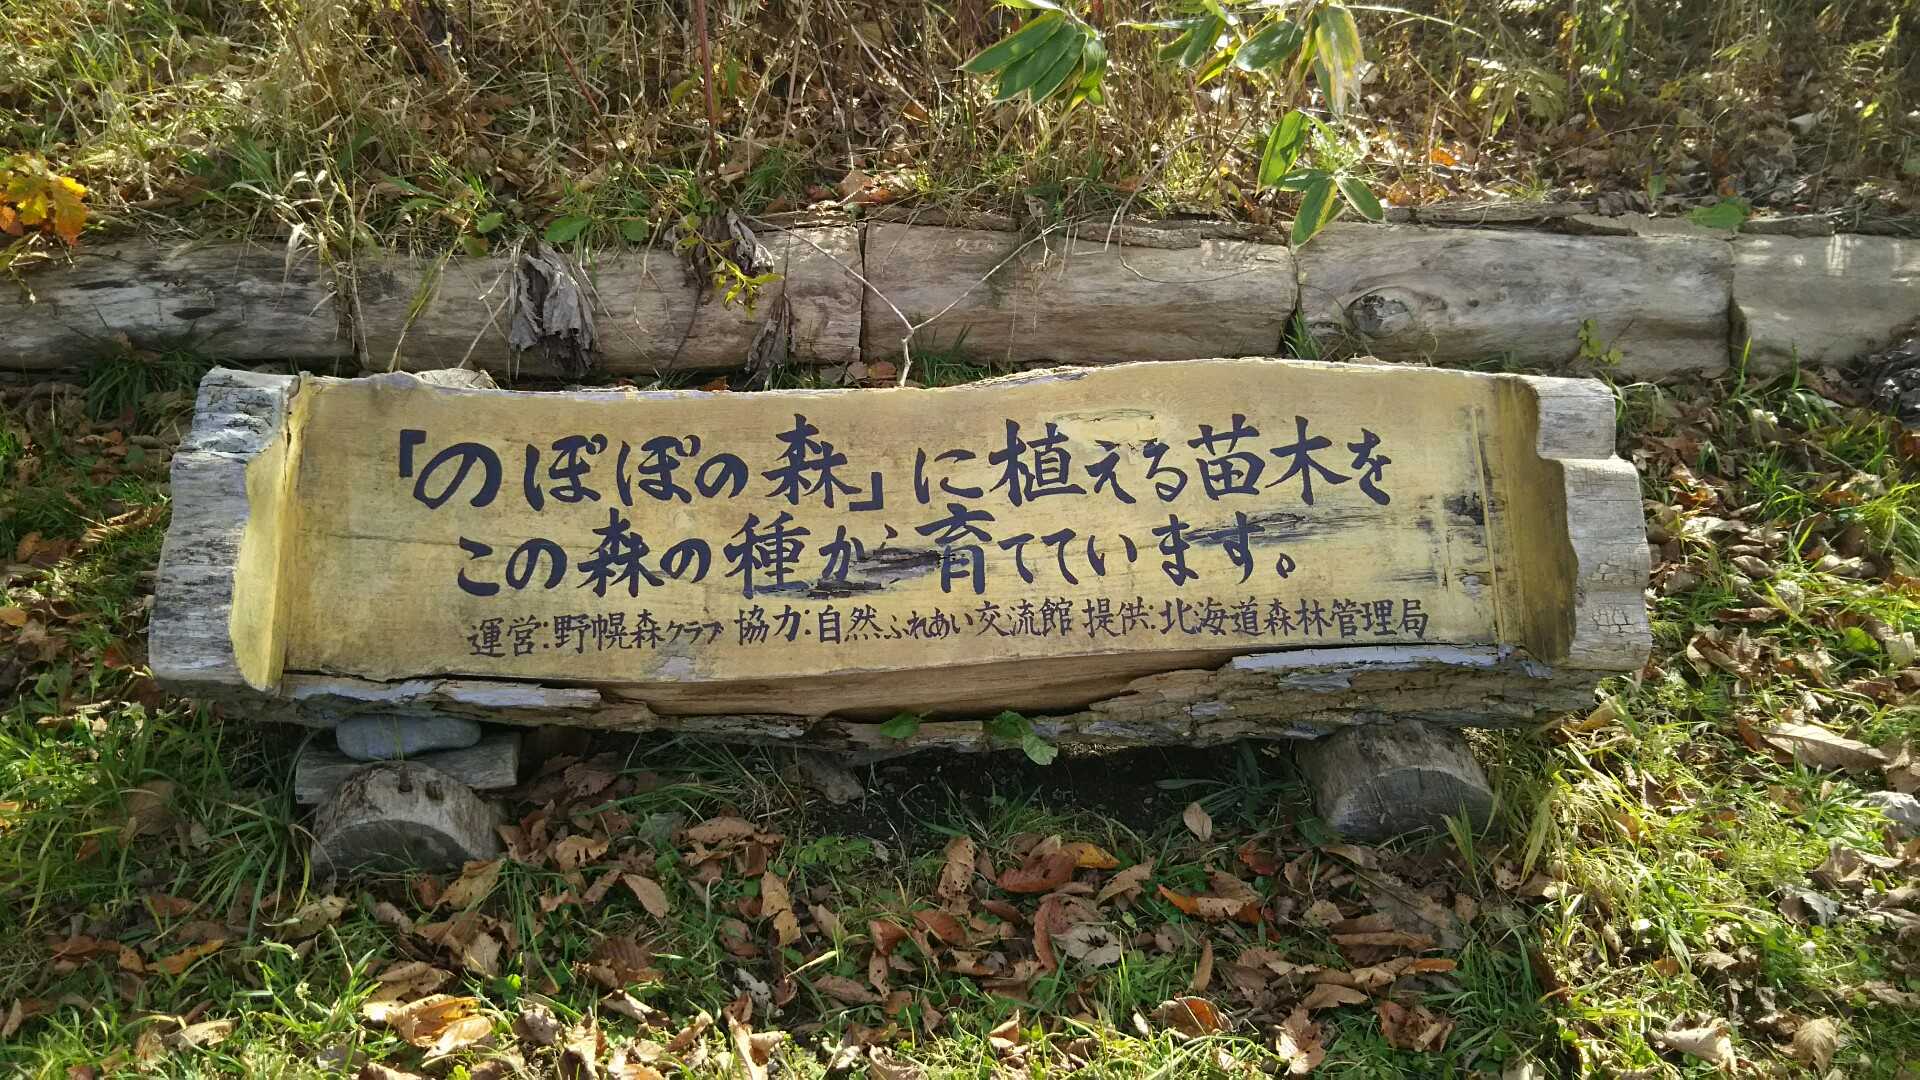 「のぽぽの森」に植える苗木を
この森の種が育てています。
運営:野幌森クラブ 協力:自然ふれあい交流館 提供:北海道森林管理局